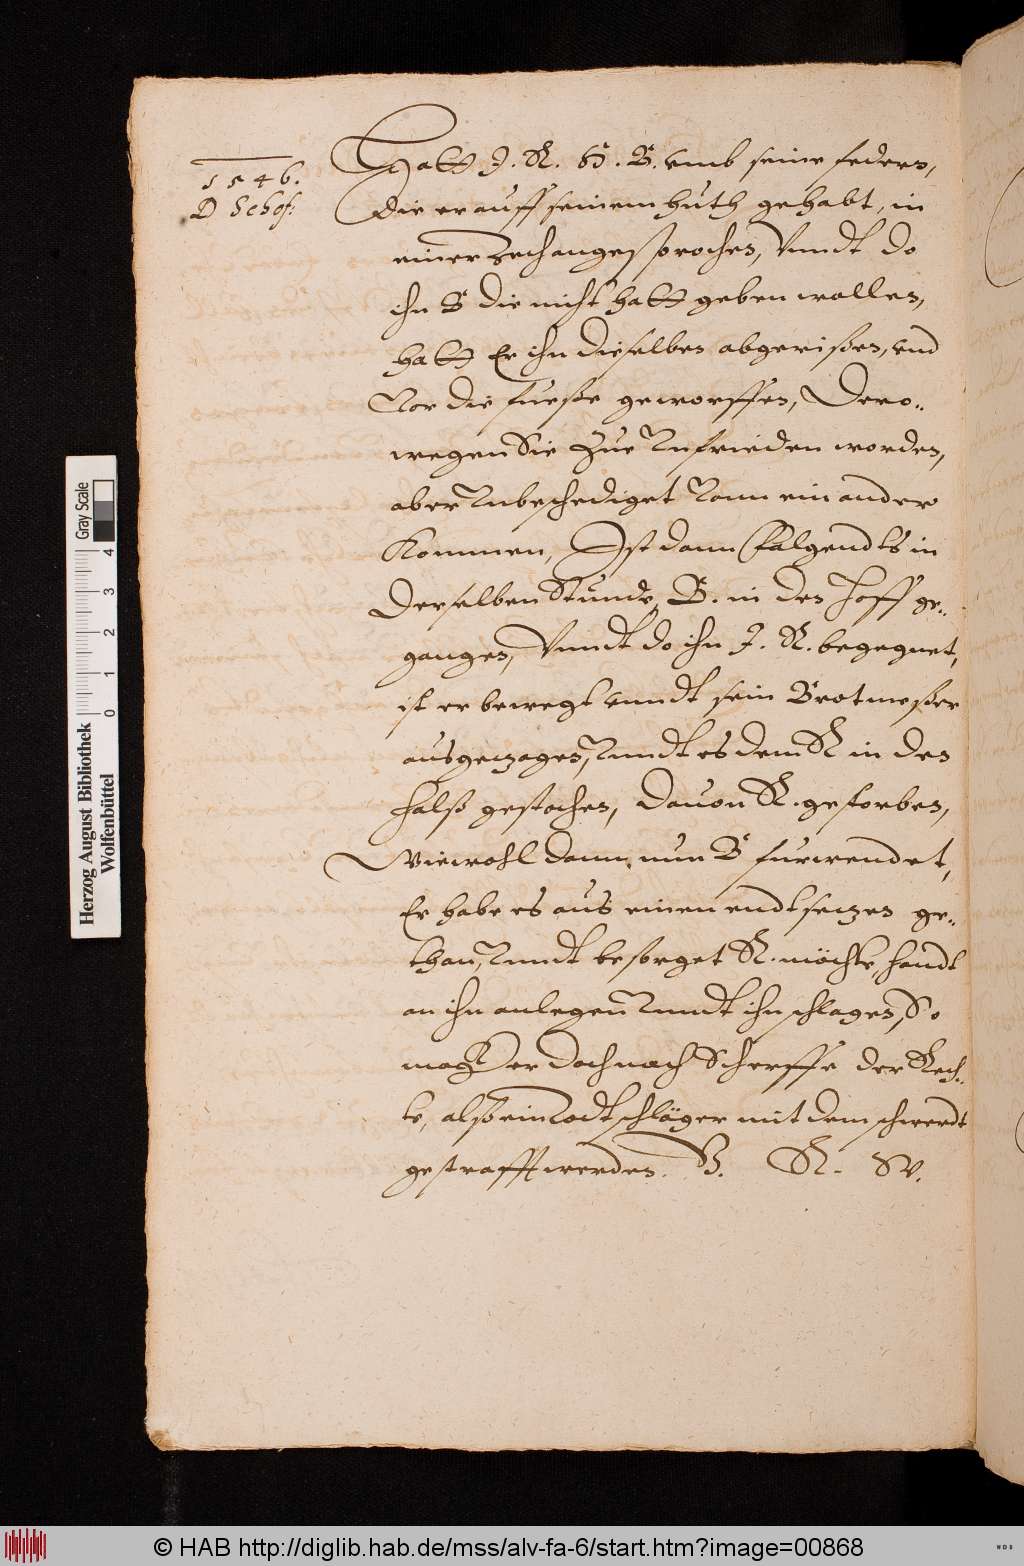 1546.
D Schof:
Hatt J. K. H. B. vmb seine federn,
die er auff seinem huth gehabt, in
einer Zech angesprochen, Vnndt do
ihn B die nicht hatt geben wollen,
hatt Er ihn dieselben abgerißen, vnd
Vor die fueße geworffen, Dero-
wegen Sie zue Vnfrieden worden,
aber Vnbeschediget Vonn ein ander
Kommen, Ist dann folgendts in
derselben Stunde, B. in den Hoff ge-
gangen, Vnndt do ihn J. K. begegnet,
ist er bewegt vnndt sein Brotmeßer
ausgezogen, Vnndt es dem K in den
Halß gestochen, Dauon K. gestorben,
Wiewohl dann nun B furwendet,
Er habe es aus einen endtsetzen ge-
than, Vnndt besorget K. möchte, handt
an ihn anlegen Vnndt ihn schlagen, So
mag Er doch nach Scherffe der Rech-
te, alß ein Todtschläger mit dem schwerdt
gestrafft werden. V. R. W.
Herzog August Bibliothek
Wolfenbüttel
0 1 2 3 4
Gray Scale
© HAB http://diglib.hab.de/mss/alv-fa-6/start.htm?image=00868